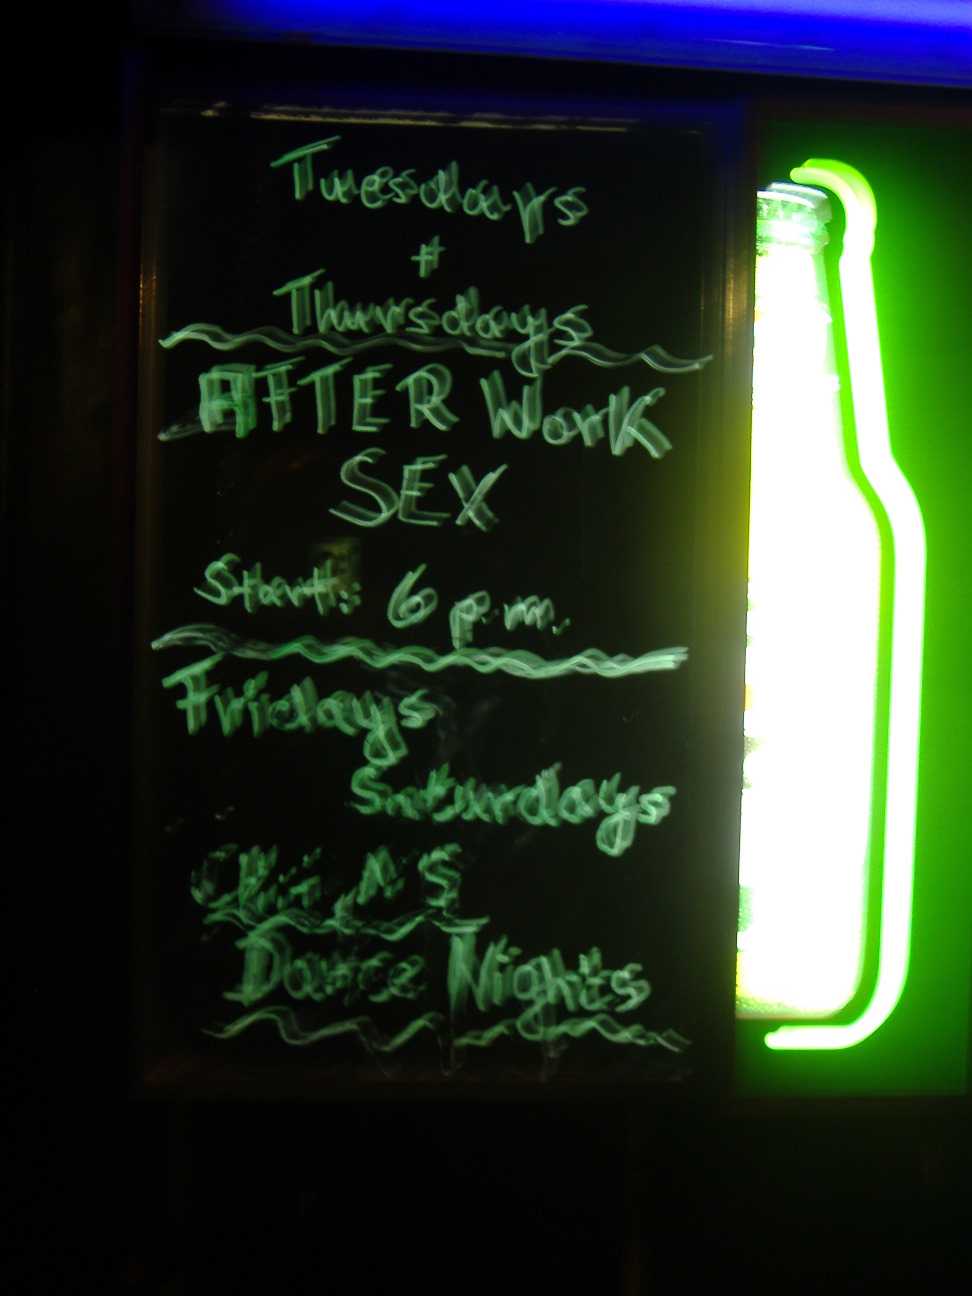 Tuesdays
+
Thursdays
AFTER Work
SEX
Start: 6 p.m.
Fridays
Saturdays
Dance Nights